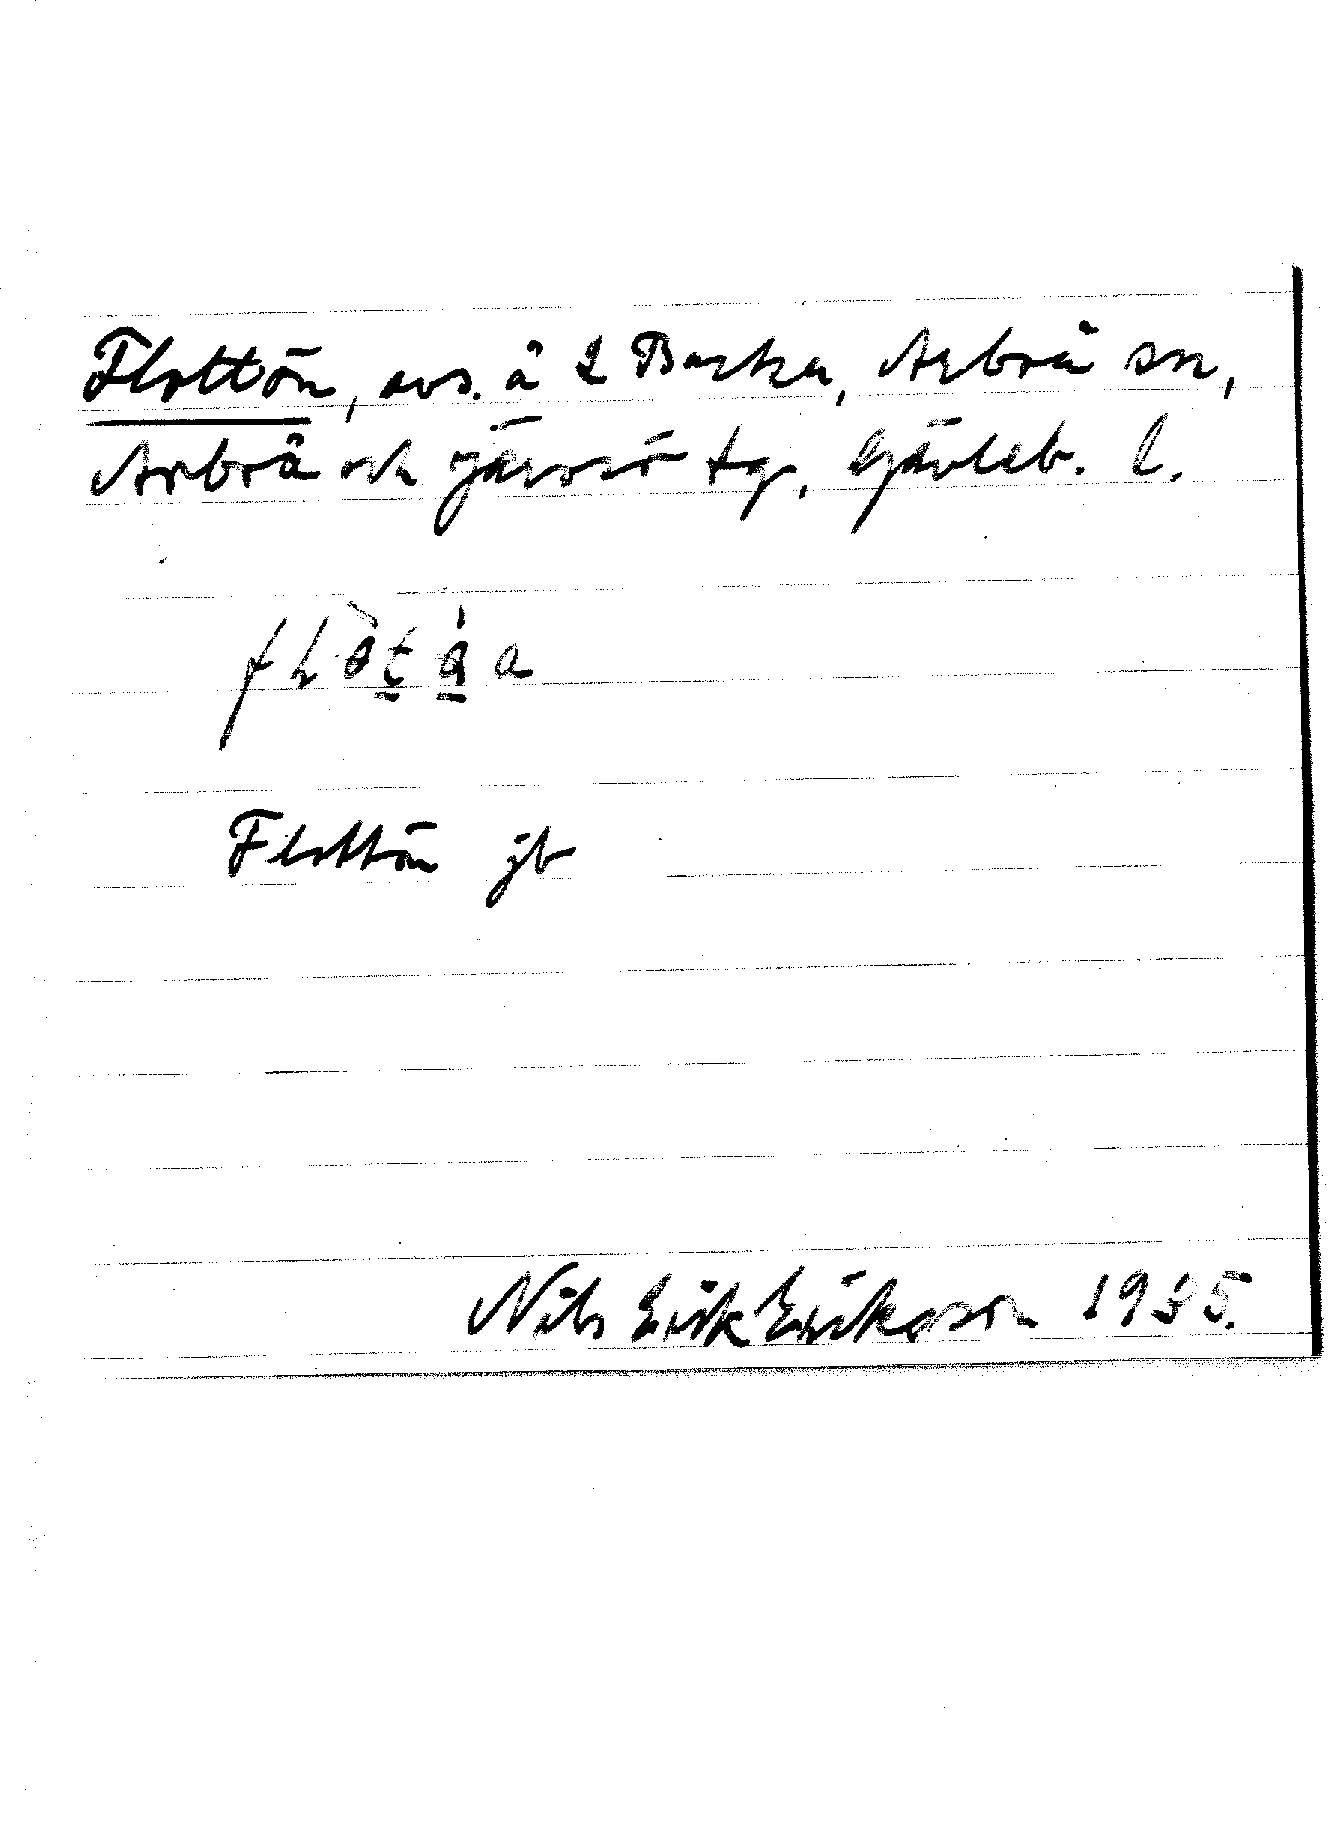 Flottön, avs. å 2 Backa, Arbrå sn,
Arbrå och Järvsö tg, Gävleb. l.
Flottön jb
Nils Erik Eriksson 1935.